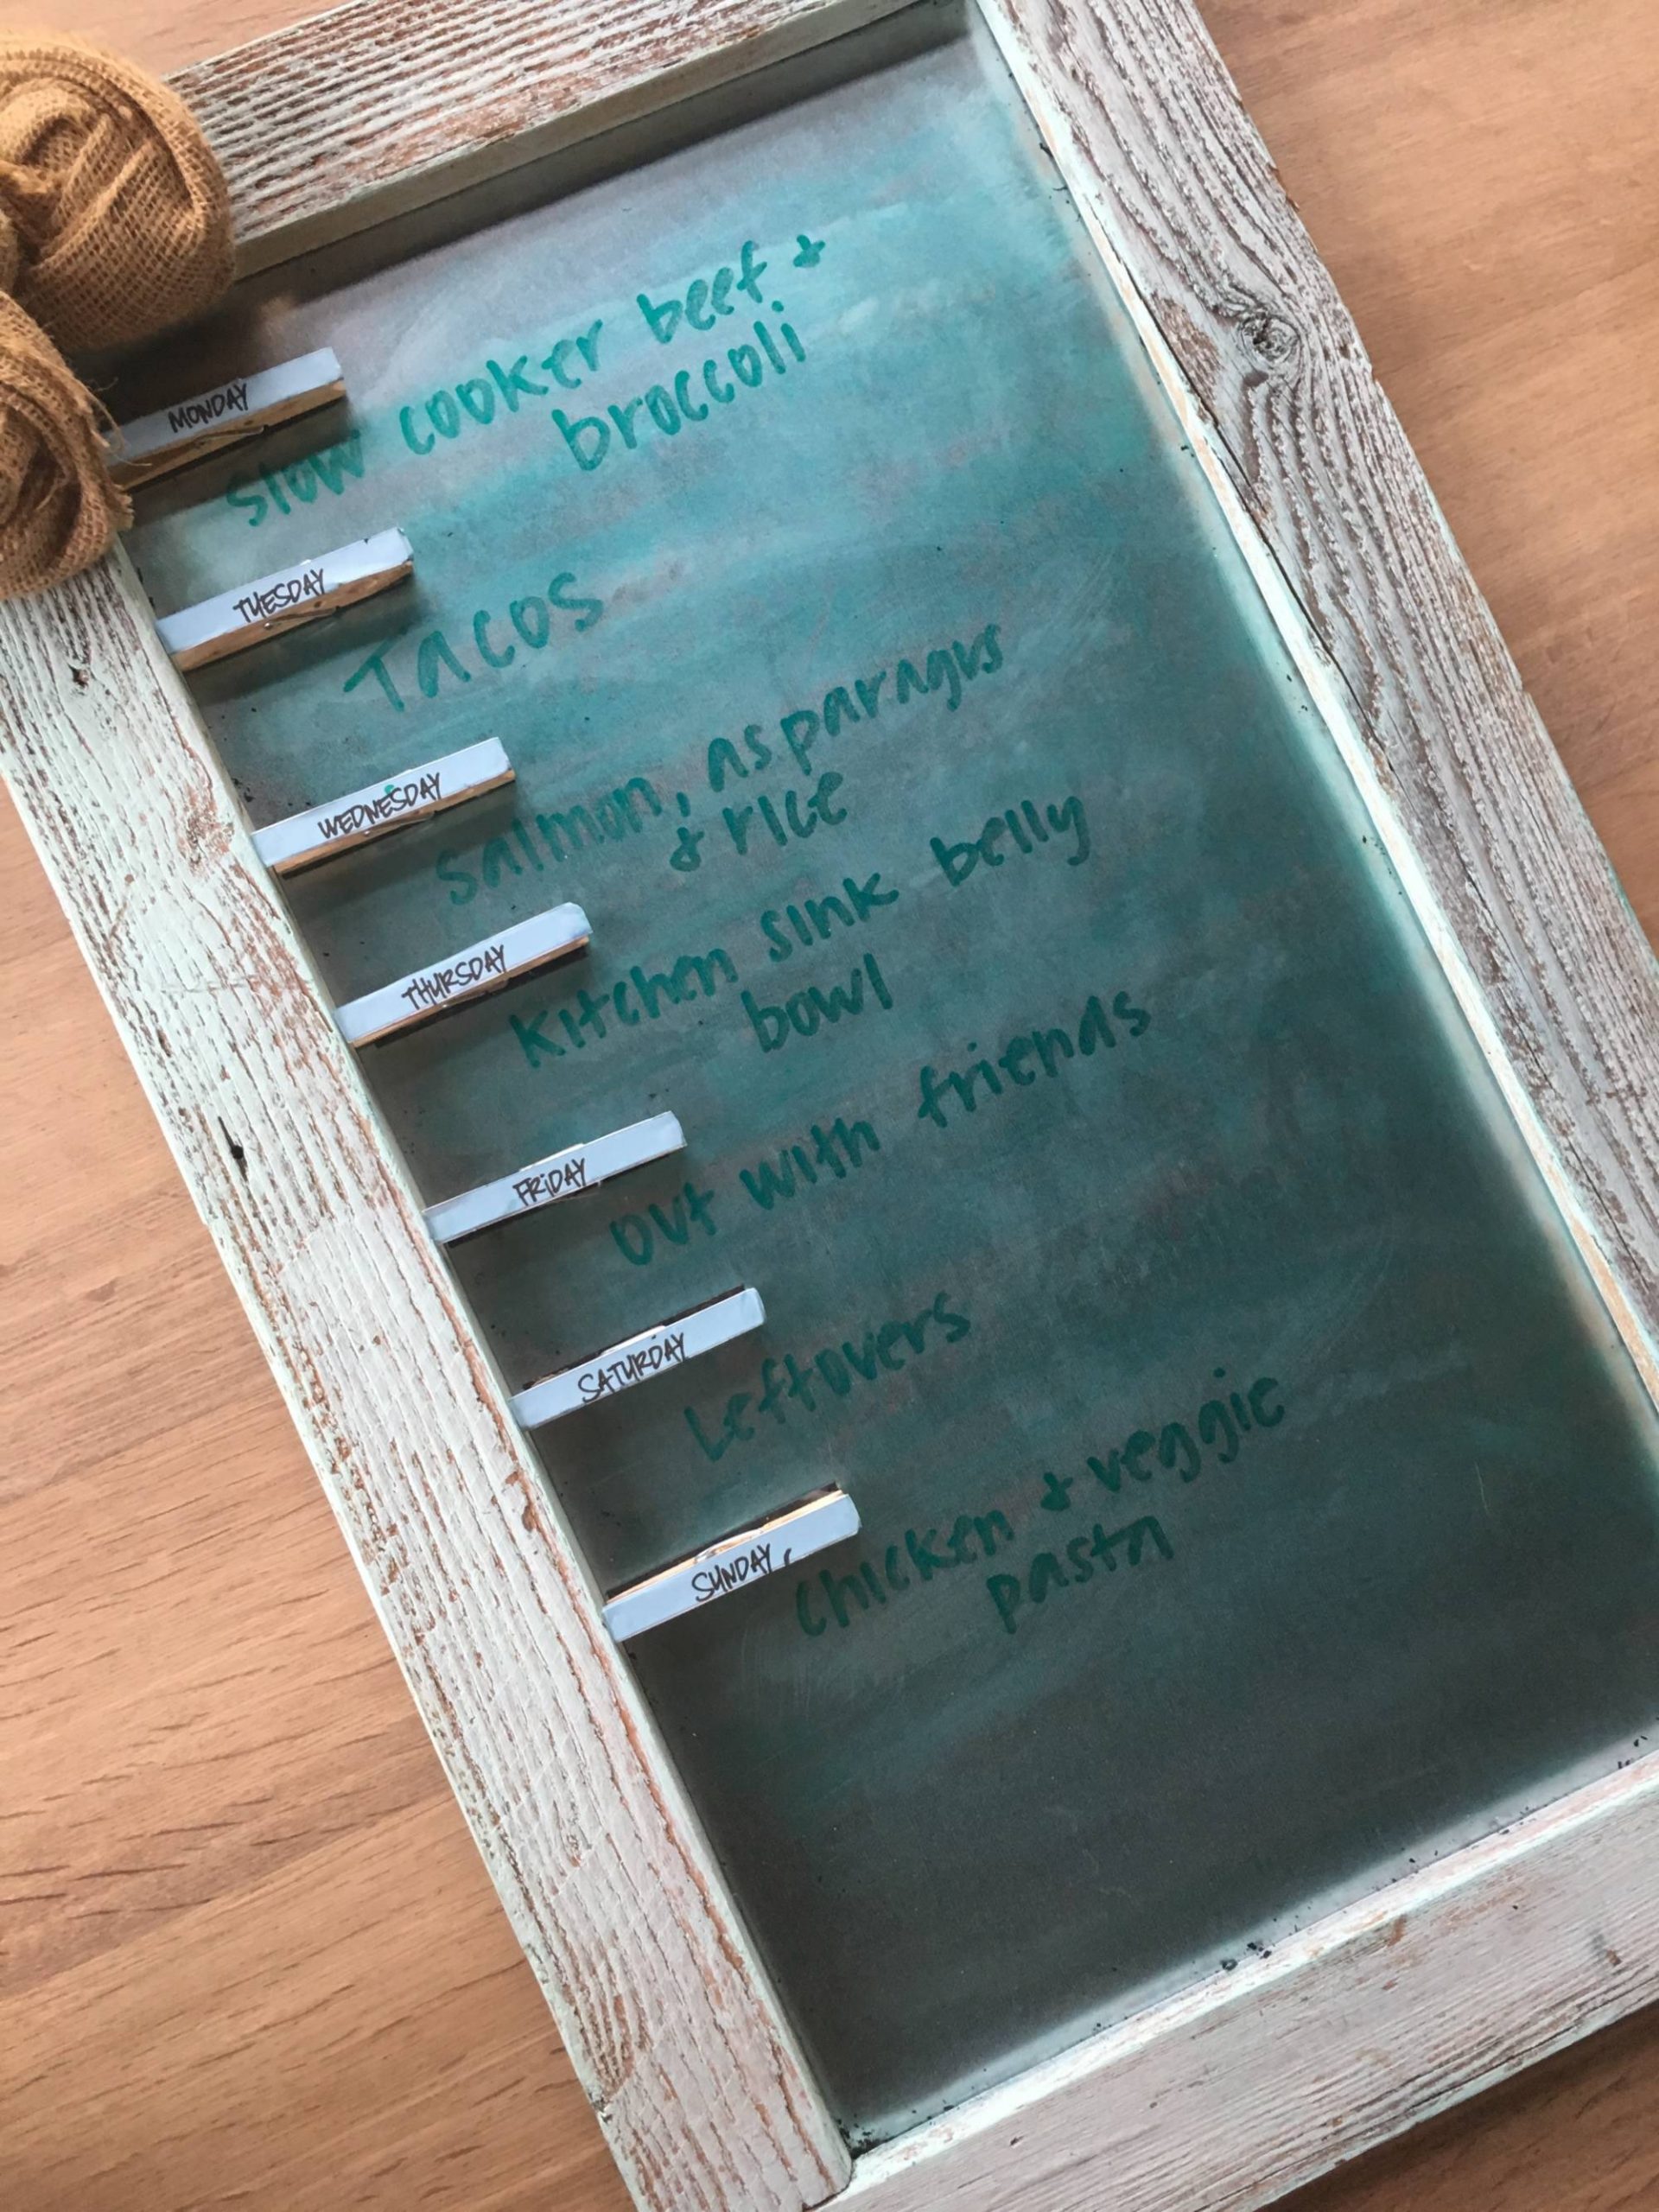 MONDAY
slow cooker beef +
broccoli
TUESDAY
Tacos
WEDNESDAY
salmon, asparagus
& rice
THURSDAY
Kitchen sink belly
bowl
FRIDAY
out with friends
SATURDAY
Leftovers
SUNDAY
chicken + veggie
pasta